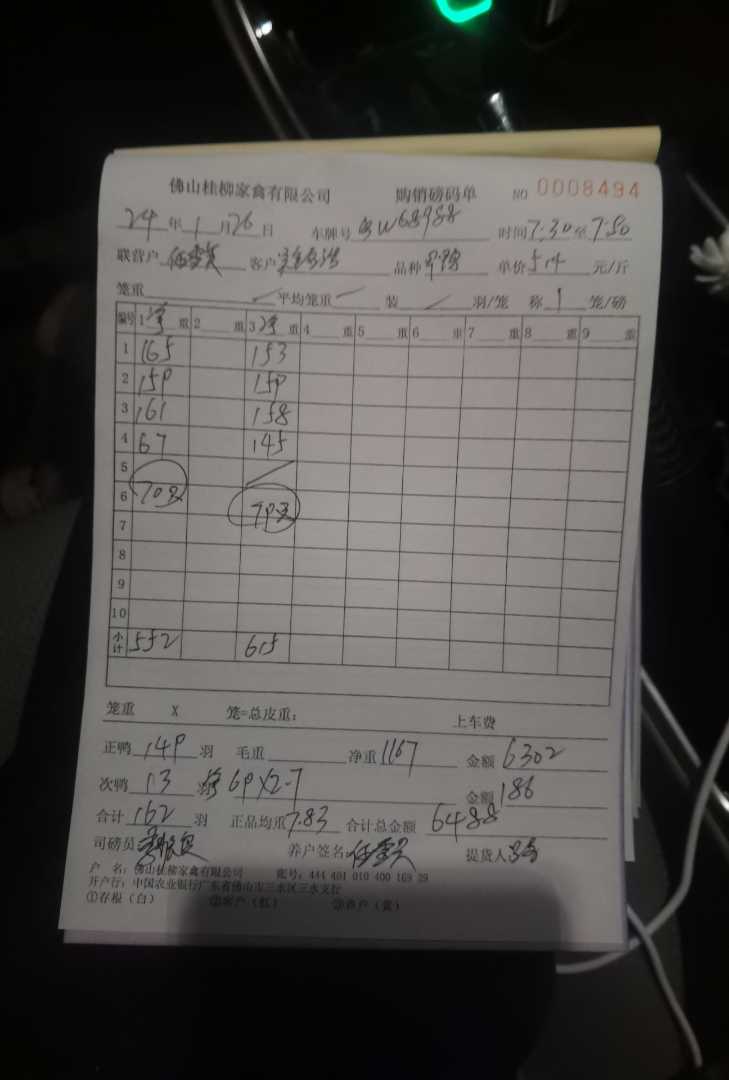 佛山桂柳家禽有限公司 购销磅码单 NO 0008494
24年1月26日 车牌号 W68988 时间7:30至7:50
联营户 客户 品种 单价5.4元/斤
笼重 平均笼重 装 羽/笼 称1笼/磅
编号 1 重 2 重 3 重 4 重 5 重 6 重 7 重 8 重 9 重
1 165 153
2 159 159
3 161 158
4 67 145
5
6 70只 79只
7
8
9
10
小计 552 615
笼重 X 笼=总皮重: 上车费
正鸭149羽 毛重 净重1167 金额6302
次鸭13 69X2-7 金额186
合计162羽 正品均重7.83 合计总金额6488
司磅员 养户签名 提货人
户 名: 佛山桂柳家禽有限公司 账号: 444 401 010 400 169 29
开户行: 中国农业银行广东省佛山市三水区三水支行
①存根(白) ②客户(红) ③养户(黄)